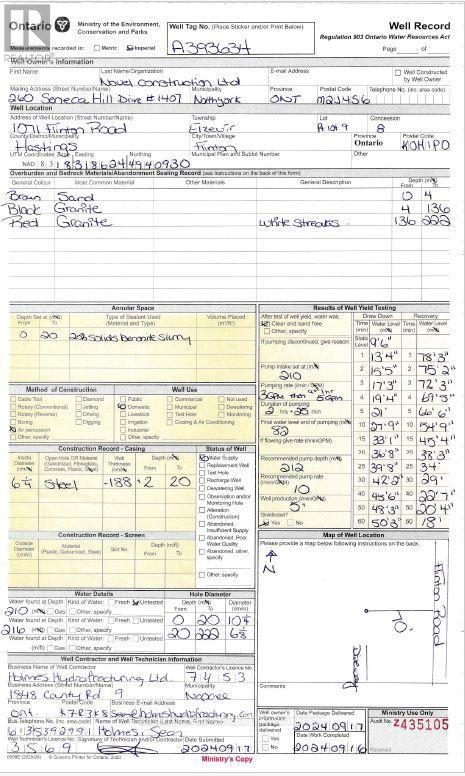 Ontario
Ministry of the Environment, Conservation and Parks
Well Tag No. (Place Sticker and/or Print Below)
A393634
Well Record
Regulation 903 Ontario Water Resources Act
Measurements recorded in: Metric Imperial
Page of
Well Owner's Information
First Name Last Name/Organization E-mail Address Well Constructed by Well Owner
Novel Construction Ltd
Mailing Address (Street Number/Name) Municipality Province Postal Code Telephone No. (inc. area code)
260 Seneca Hill Drive #1407 Northyork ONT M2J4S6
Well Location
Address of Well Location (Street Number/Name) Township Lot Concession
1071 Flinton Road Elzevir 8
County/District/Municipality City/Town/Village Province Postal Code
Hastings Flinton Ontario K0H1P0
UTM Coordinates Zone Easting Northing Municipal Plan and Sublot Number Other
NAD 83 18 318624 4940930
Overburden and Bedrock Materials/Abandonment Sealing Record (see instructions on the back of this form)
General Colour Most Common Material Other Materials General Description Depth (m/ft) From To
Brown Sand 0 4
Black Granite 4 136
Red Granite White Streaks 136 222
Annular Space
Depth Set at (m/ft) From To Type of Sealant Used (Material and Type) Volume Placed (m³/ft³)
0 20 Solids Bentonite Slurry
Method of Construction Well Use
Cable Tool Diamond Public Commercial Not used
Rotary (Conventional) Jetting Domestic Municipal Dewatering
Rotary (Reverse) Driving Livestock Test Hole Monitoring
Boring Digging Irrigation Cooling & Air Conditioning
Air percussion Industrial
Other, specify Other, specify
Construction Record - Casing Status of Well
Inside Diameter (cm/in) Open Hole OR Material (Galvanized, Fibreglass, Concrete, Plastic, Steel) Wall Thickness (cm/in) Depth (m/ft) From To
6¼ Steel .188 +2 20
Water Supply
Replacement Well
Test Hole
Recharge Well
Dewatering Well
Observation and/or Monitoring Hole
Alteration (Construction)
Abandoned, Insufficient Supply
Abandoned, Poor Water Quality
Abandoned, other, specify
Other, specify
Construction Record - Screen
Outside Diameter (cm/in) Material (Plastic, Galvanized, Steel) Slot No. Depth (m/ft) From To
Water Details Hole Diameter
Water found at Depth Kind of Water: Fresh Untested Depth (m/ft) From To Diameter (cm/in)
210 (m/ft) Gas Other, specify 0 20
Water found at Depth Kind of Water: Fresh Untested
216 (m/ft) Gas Other, specify 20 222
Water found at Depth Kind of Water: Fresh Untested
(m/ft) Gas Other, specify
Results of Well Yield Testing
After test of well yield, water was: Draw Down Recovery
Clear and sand free Time (min) Water Level (m/ft) Time (min) Water Level (m/ft)
Other, specify
If pumping discontinued, give reason: Static Level 9'6"
1 13'4" 1 78'3"
Pump intake set at (m/ft) 210 2 15'5" 2 75'2"
Pumping rate (l/min / GPM) 3 17'3" 3 72'3"
4 19'4" 4 69'5"
Duration of pumping 2 hrs + 25 min 5 21' 5 66'6"
Final water level end of pumping (m/ft) 82 10 27'9" 10 54'9"
If flowing give rate (l/min/GPM) 15 33'1" 15 45'4"
20 36'8" 20 38'3"
Recommended pump depth (m/ft) 212 25 39'8" 25 34'
Recommended pump rate (l/min/GPM) 10 30 42'2" 30 29'
40 45'6" 40 22'7"
Well production (l/min/GPM) 5 50 48'3" 50 20'4"
Disinfected? Yes No 60 50'3" 60 18'
Map of Well Location
Please provide a map below following instructions on the back.
N
Flinton Road
Driveway
Comments:
Well Contractor and Well Technician Information
Business Name of Well Contractor Well Contractor's Licence No.
Holmes Hydrofracturing Ltd. 7453
Business Address (Street Number/Name) Municipality
1848 County Rd 9 Napanee
Province Postal Code Business E-mail Address
Ont K7R3K8
Bus. Telephone No. (inc. area code) Name of Well Technician (Last Name, First Name)
6135392991 Holmes, Sean
Well Technician's Licence No. Signature of Technician and/or Contractor Date Submitted
3569 20240917
Well owner's information package delivered Yes No
Date Package Delivered
20240917
Date Work Completed
20240916
Ministry Use Only
Audit No. Z435105
Received
© Queen's Printer for Ontario, 2020
Ministry's Copy